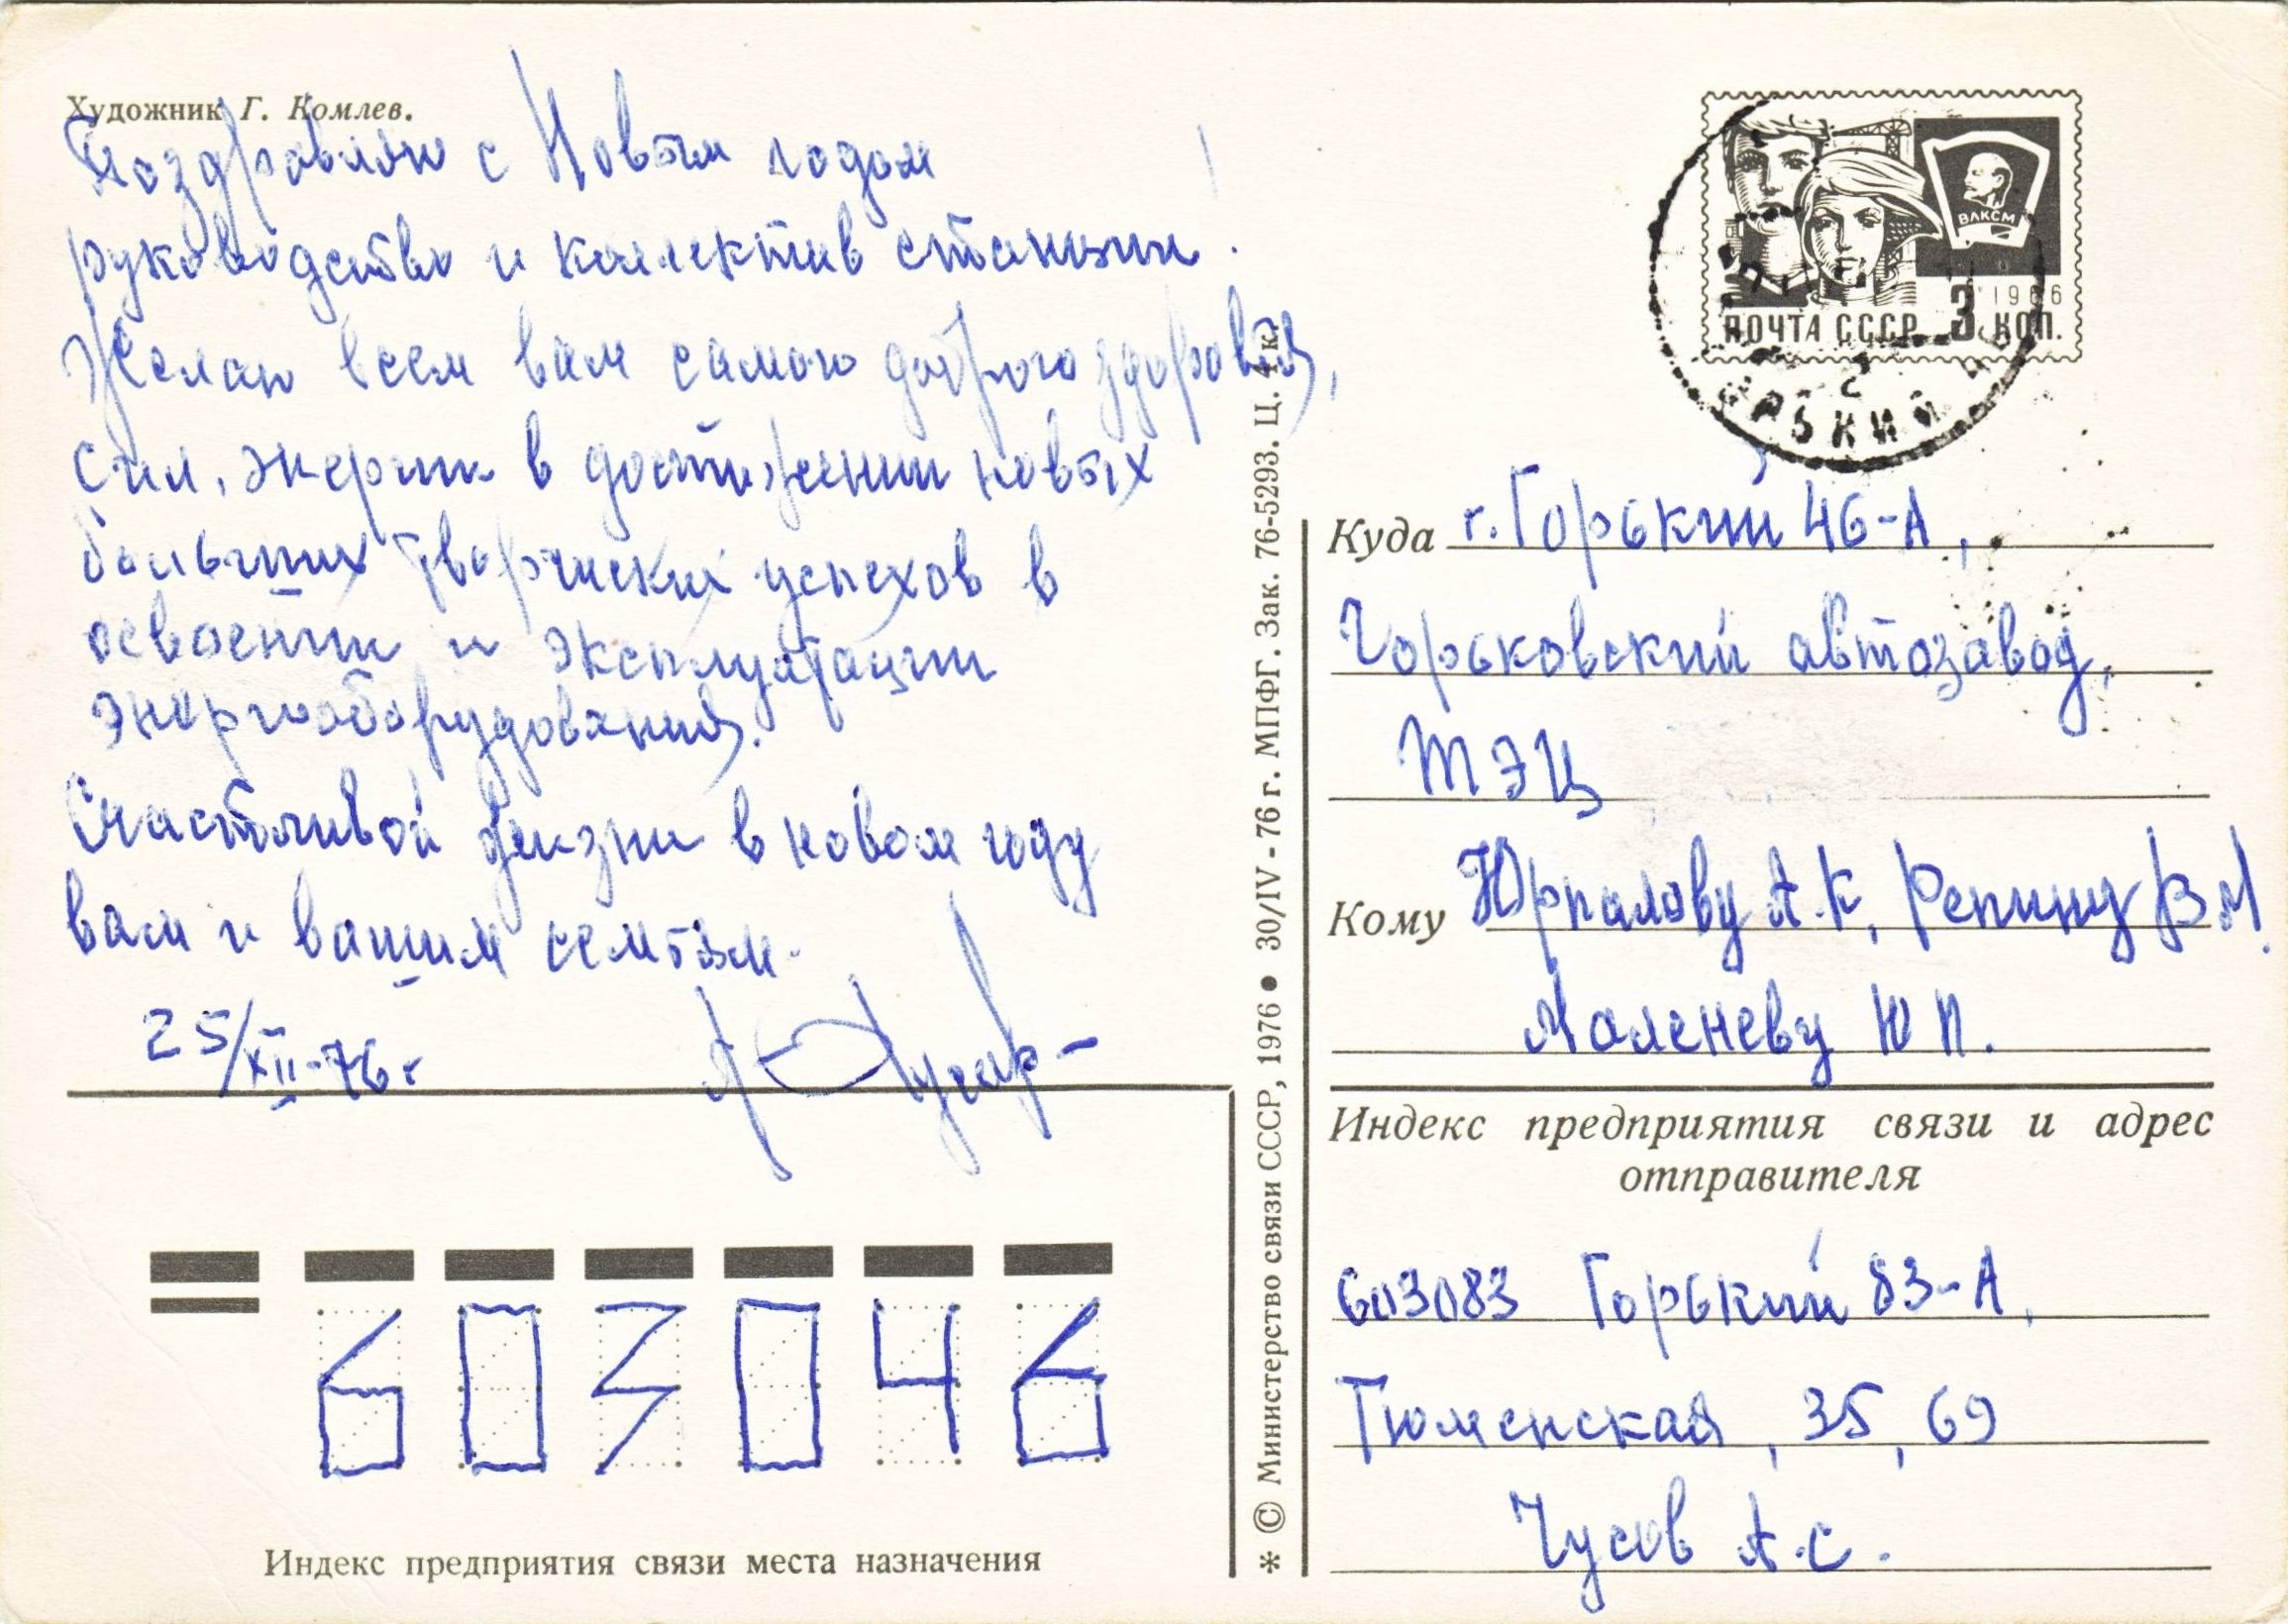 Художник Г. Комлев.
Поздравляю с Новым годом
руководство и коллектив станции!
Желаю всем вам самого доброго здоровья,
сил, энергии в достижении новых
больших творческих успехов в
освоении и эксплуатации
энергооборудования.
Счастливой жизни в новом году
вам и вашим семьям.
25/XII-76 г
603046
Индекс предприятия связи места назначения
* © Министерство связи СССР, 1976 ● 30/IV - 76 г. МПФГ. Зак. 76-5293. Ц. 4 к.
ВЛКСМ
1966
ПОЧТА СССР 3 КОП.
Куда г. Горький 46-А,
Горьковский автозавод,
ТЭЦ
Кому А.К, Репину В.М.
Маленеву Ю П.
Индекс предприятия связи и адрес
отправителя
603083 Горький 83-А,
Тюменская, 35, 69
Чусов А.С.